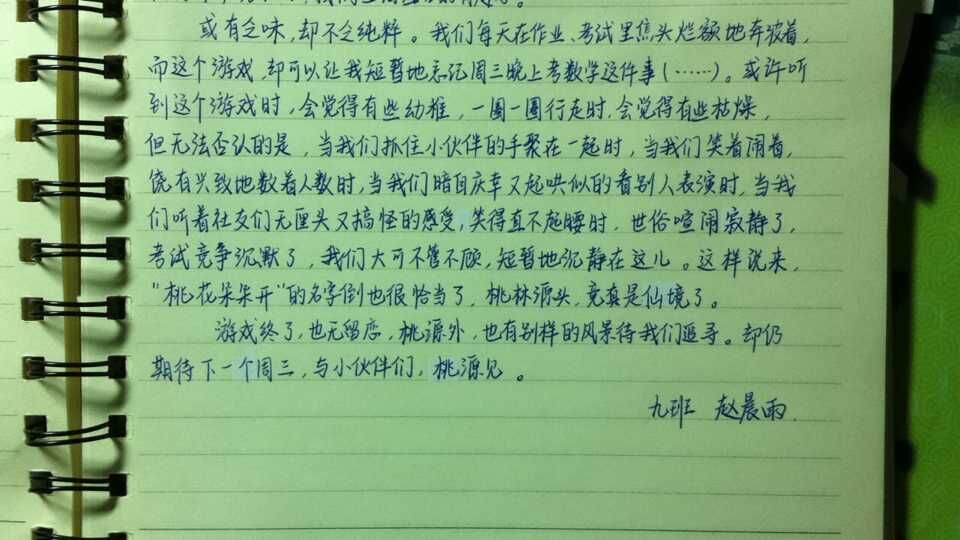 或有乏味,却不乏纯粹。我们每天在作业、考试里焦头烂额地奔波着,
而这个游戏,却可以让我短暂地忘记周三晚上考数学这件事(……)。或许听
到这个游戏时,会觉得有些幼稚,一圈一圈行走时,会觉得有些枯燥,
但无法否认的是,当我们抓住小伙伴的手聚在一起时,当我们笑着闹着,
饶有兴致地数着人数时,当我们暗自庆幸又起哄似的看别人表演时,当我
们听着社友们无厘头又搞怪的感受,笑得直不起腰时,世俗喧闹寂静了,
考试竞争沉默了,我们大可不管不顾,短暂地沉静在这儿。这样说来,
"桃花朵朵开"的名字倒也很恰当了,桃林源头,竟真是仙境了。
游戏终了,也无留恋,桃源外,也有别样的风景待我们追寻。却仍
期待下一个周三,与小伙伴们,桃源见。
九班 赵晨雨